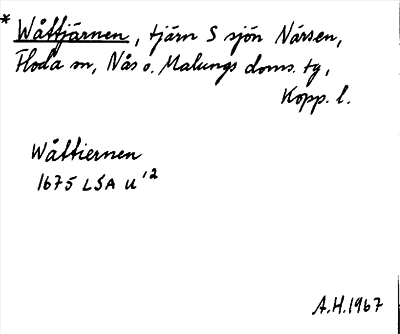 * Wåttjärnen, tjärn S sjön Närsen,
Floda sn, Nås o. Malungs doms. tg,
Kopp. l.
Wåttiernen
1675 LSA U'2
A.H. 1967